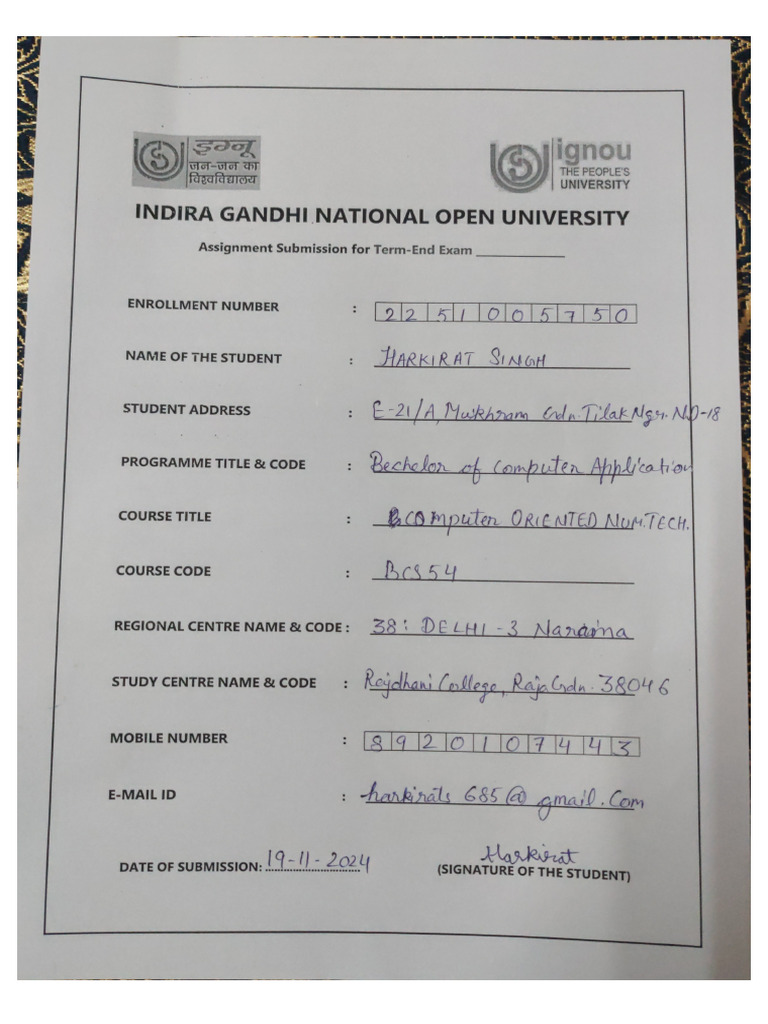 इग्नू
जन-जन का
विश्वविद्यालय
ignou
THE PEOPLE'S
UNIVERSITY
INDIRA GANDHI NATIONAL OPEN UNIVERSITY
Assignment Submission for Term-End Exam ____________
ENROLLMENT NUMBER : 2251005750
NAME OF THE STUDENT : HARKIRAT SINGH
STUDENT ADDRESS : E-21/A, Mukhram Gdn. Tilak Ngr. ND-18
PROGRAMME TITLE & CODE : Bechelor of Computer Application
COURSE TITLE : COMputer ORIENTED NUM.TECH.
COURSE CODE : BCS54
REGIONAL CENTRE NAME & CODE : 38: DELHI-3 Naraina
STUDY CENTRE NAME & CODE : Rajdhani College, Raja Gdn. 38046
MOBILE NUMBER : 8920107443
E-MAIL ID : harkirats685@gmail.Com
DATE OF SUBMISSION: 19-11-2024
Harkirat
(SIGNATURE OF THE STUDENT)